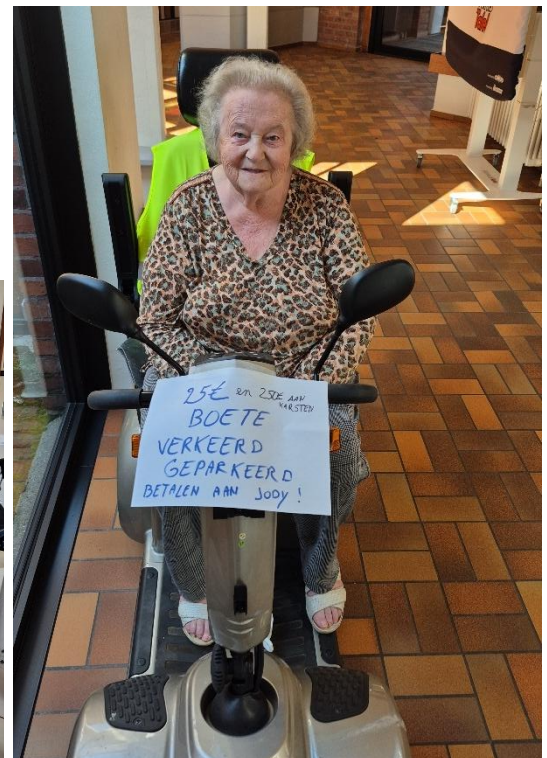 25€ en 250€ AAN
KARSTEN
BOETE
VERKEERD
GEPARKEERD
BETALEN AAN JODY !